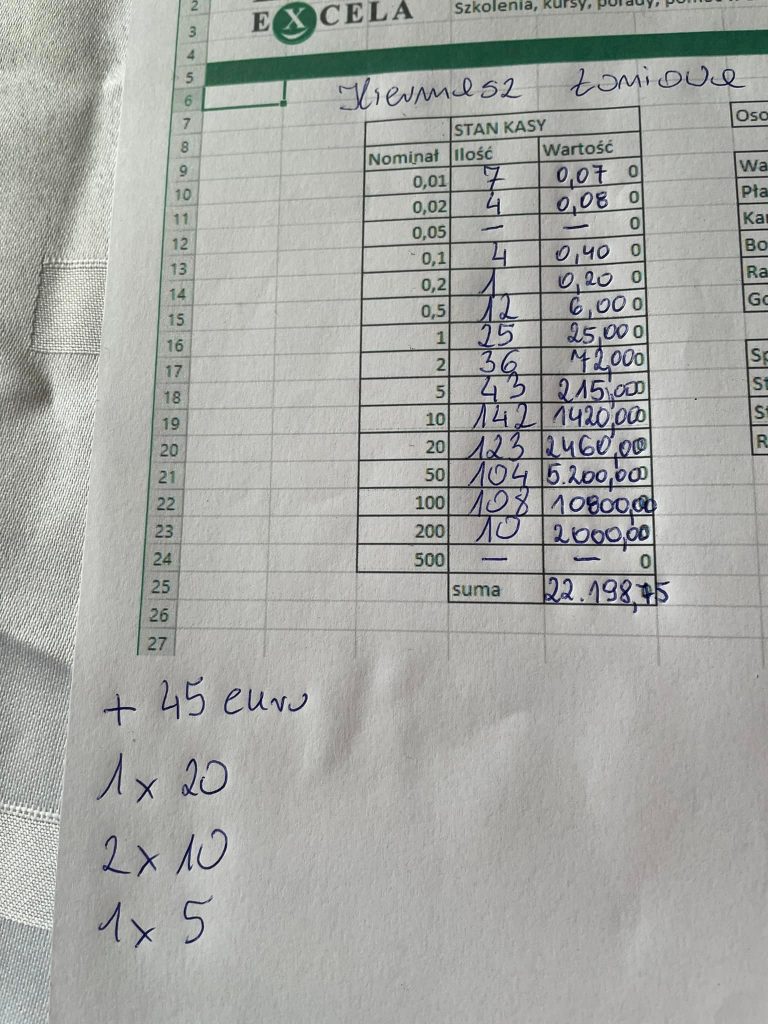 2
EXCELA Szkolenia, kursy, porady,
3
4
5
6 Kiermasz Łomiowe
7 STAN KASY Oso
8 Nominał Ilość Wartość
9 0,01 7 0,07 0 Wa
10 0,02 4 0,08 0 Pła
11 0,05 — — 0 Kar
12 0,1 4 0,40 0 Bo
13 0,2 1 0,20 0 Ra
14 0,5 12 6,00 0 Go
15 1 25 25,00 0
16 2 36 72,00 0 Sp
17 5 43 215,00 0 St
18 10 142 1420,00 0 St
19 20 123 2460,00 0 R
20 50 104 5.200,00 0
21 100 108 10800,00 0
22 200 10 2000,00 0
23 500 — — 0
24 suma 22.198,75
25
26
27
+ 45 euro
1 x 20
2 x 10
1 x 5